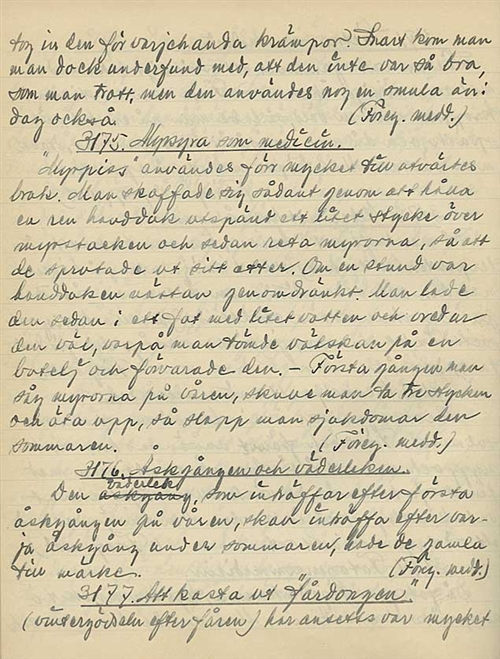 tog in den för varjehanda krämpor. Snart kom man
man dock underfund med, att den inte var så bra,
som man trott, men den användes nog en smula än i
dag också. (Föreg. medd.)
3175. Myrsyra som medicin.
"Myrpiss" användes förr mycket till utvärtes
bruk. Man skaffade sig sådant genom att hålla
en ren handduk utspänd ett litet stycke över
myrstacken och sedan reta myrorna, så att
de sprutade ut sitt etter. Om en stund var
handduken nästan genomdränkt. Man lade
den sedan i ett fat med litet vatten och vred ur
den väl, varpå man tömde vätskan på en
butelj och förvarade den. - Första gången man
såg myrorna på våren, skulle man ta tre stycken
och äta upp, så slapp man sjukdomar den
sommaren. (Föreg. medd.)
3176. Åskgången och väderleken.
Den väderlek, som inträffar efter första
åskgången på våren, skall inträffa efter var-
ja åskgång under sommaren, hade de gamla
till märke. (Föreg. medd.)
3177. Att kasta ut "fårdongen"
(vintergödseln efter fåren) har ansetts var mycket